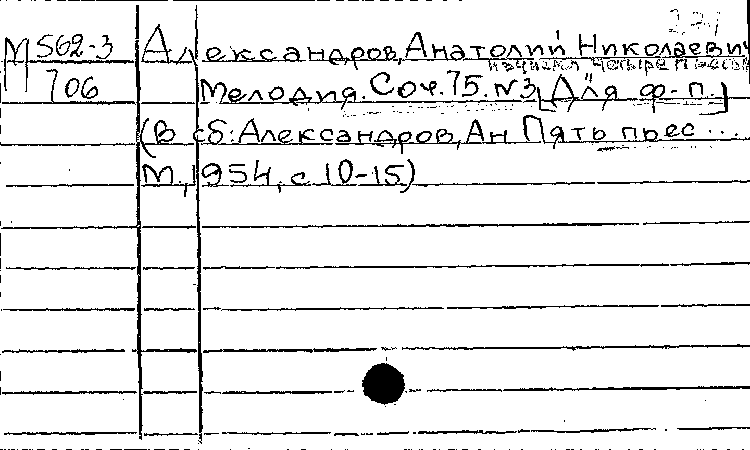 2,7
М 562-3 Александров, Анатолий Николаевич
Четыре пьесы
706 Мелодия. Соч. 75. N3 [Для ф-п.]
(В сб: Александров, Ан Пять пьес...
М., 1954, с 10-15)